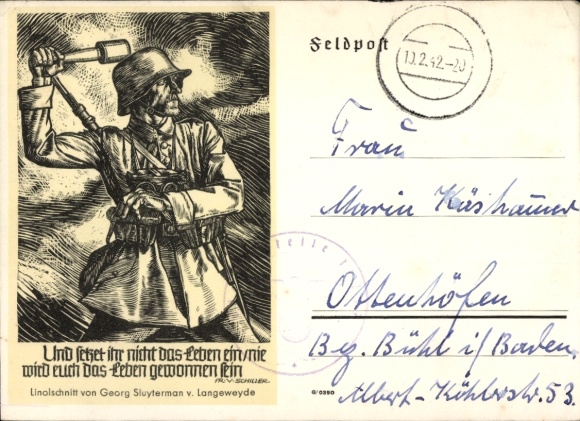 Feldpost
10.2.42.-20
Frau
Maria Käshammer
Ottenhöfen
Bz. Bühl i/Baden.
Albert-Köhlerstr. 53.
Und setzet ihr nicht das Leben ein/nie
wird euch das Leben gewonnen sein
FR. V. SCHILLER
Linolschnitt von Georg Sluyterman v. Langeweyde
G/0390